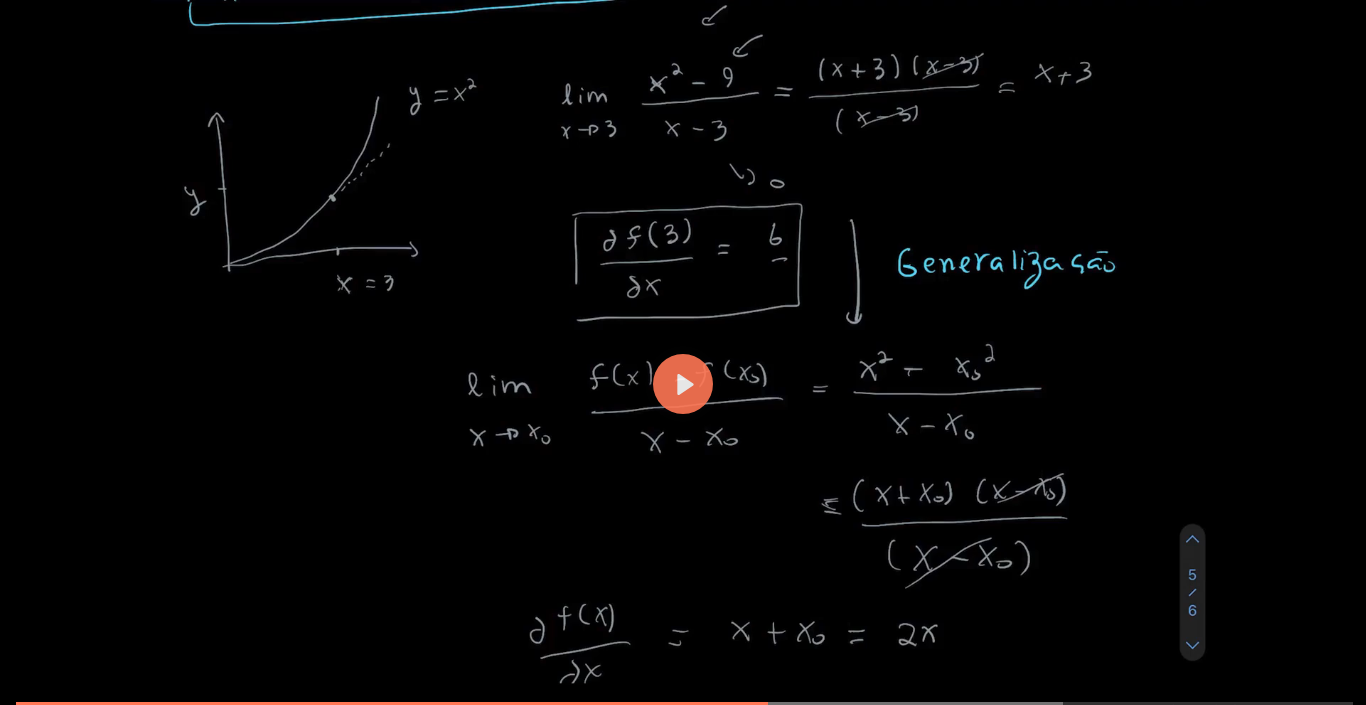 y = x²
lim x→3 x² - 9 / x - 3 = (x + 3) (x - 3) / (x - 3) = x + 3
y
x = 3
↳ 0
∂f(3) / ∂x = 6
Generalização
lim x→x₀ f(x) f(x₀) / x - x₀ = x² - x₀² / x - x₀
= (x + x₀) (x - x₀) / (x - x₀)
∂f(x) / ∂x = x + x₀ = 2x
5
/
6